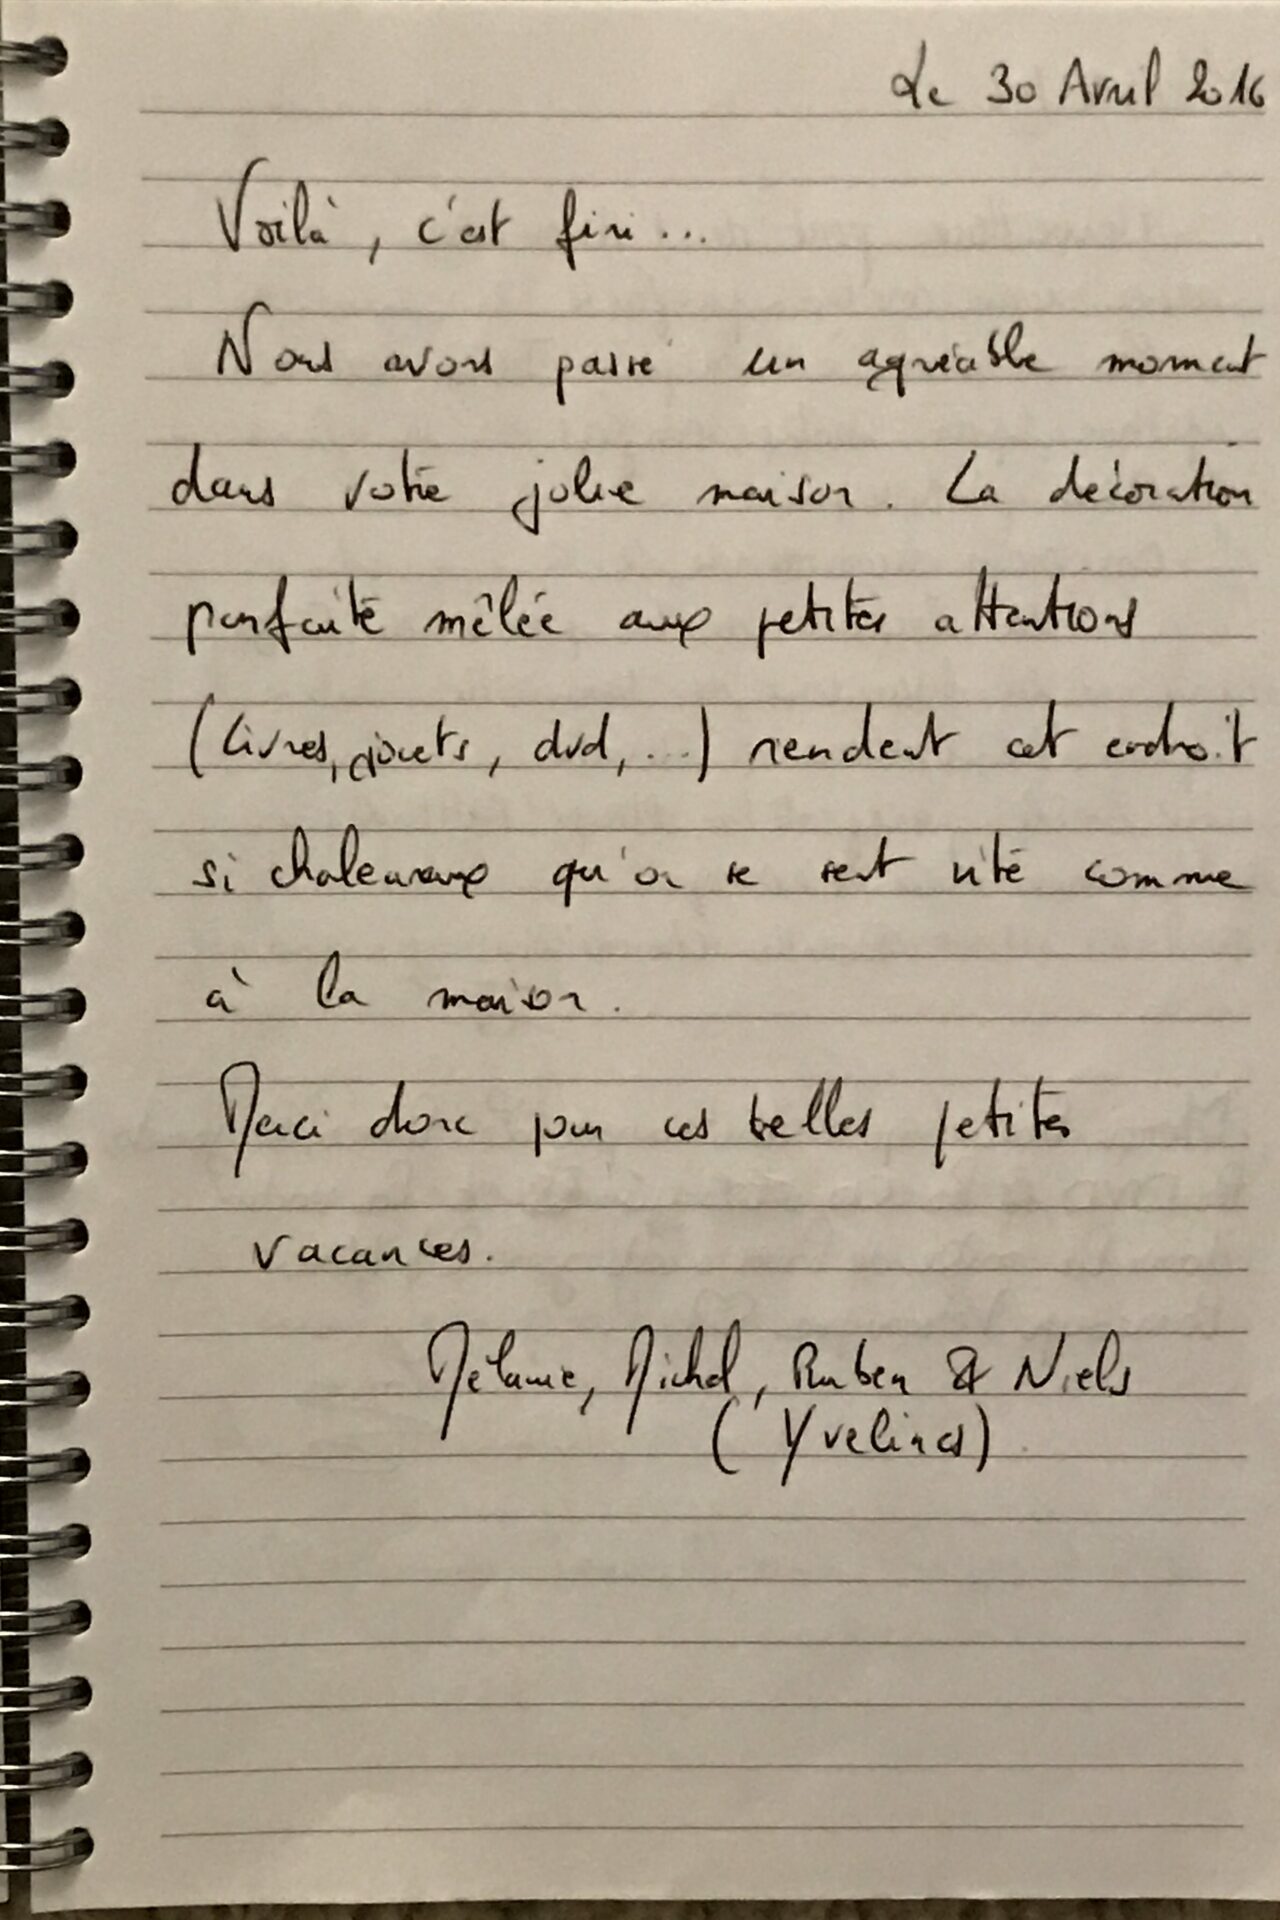 Le 30 Avril 2016
Voilà, c'est fini...
Nous avons passé un agréable moment
dans votre jolie maison. La décoration
parfaite mêlée aux petites attentions
(Livres, jouets, dvd, ...) rendent cet endroit
si chaleureux qu'on se sent vite comme
à la maison.
Merci donc pour ces belles petites
vacances.
Mélanie, Michel, Ruben & Niels
(Yvelines)